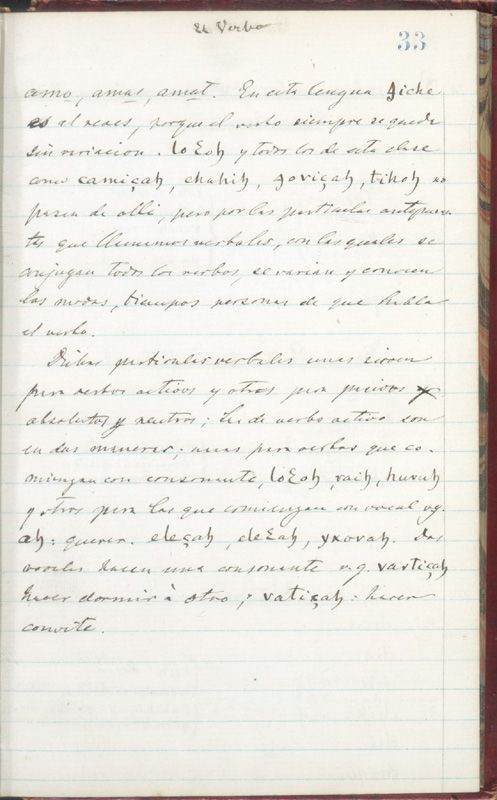 El Verbo
33
amo, amas, amat. En esta lengua Ɉiche
es al reves, porque el verbo siempre se queda
sin variacion. loƐoh y todos los de esta clase
como camiçah, chahih, ɈoviçaḤ, tihoh no
pasan de alli, pero por las particulas antepues-
tas que llamamos verbales, con las quales se
conjugan todos los verbos, se varian y conocen
los modos, tiempos personas de que habla
el verbo.
Dichas particulas verbales unas sirven
para verbos activos y otras para pasivos y
absolutos y neutros; las de verbo activo son
en dos maneras; unas para verbos que co-
mienzan con consonante, loƐoh, raih, huruh
y otros para los que comienzan con vocal v.g.
ah: querer. eleçah, eleƐah, yxovah. Dos
vocales hacen una consonante v.g. vartiçah
hacer dormir à otro; vatiçah: hacer
convite.